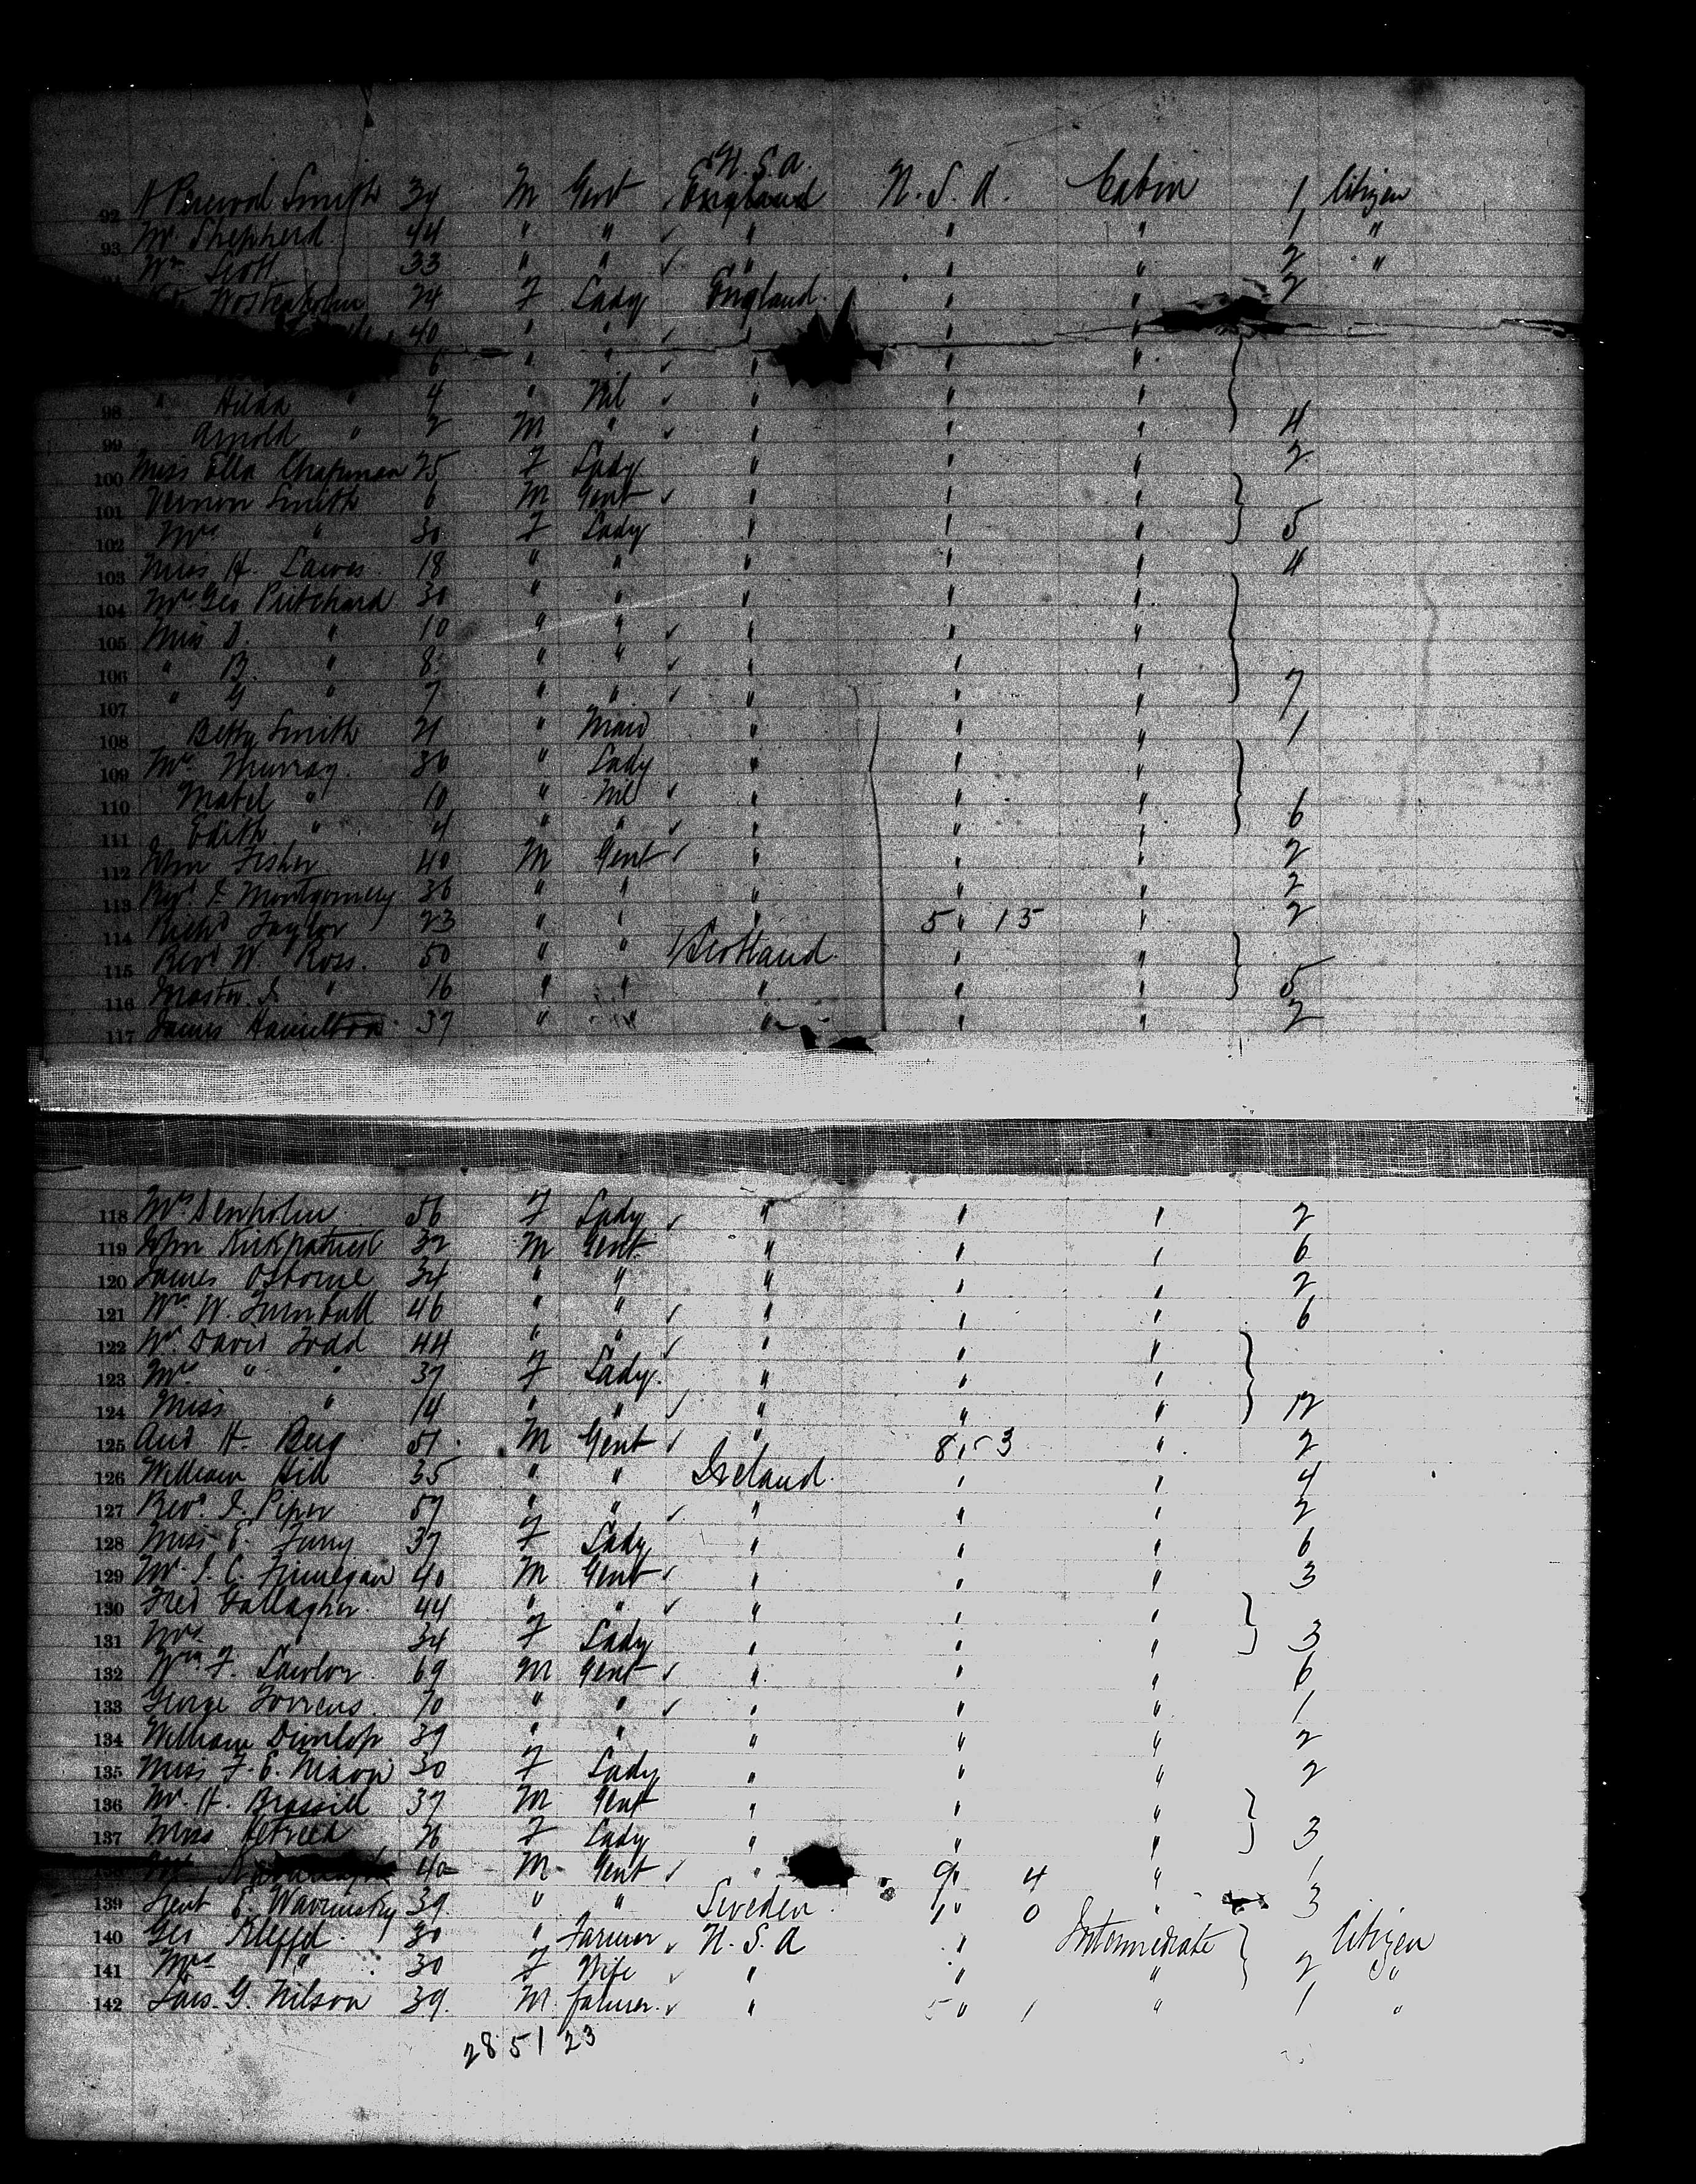 U. S. A.
92 H Percival Smith 34 M Gent England U. S. A. Cabin 1 Citizen
93 Mr Shepherd 44 " " " " " 1 "
Wm Scott 33 " " " " " 2 "
Wostenholm 24 F Lady England " " 2
40 " " " " "
6 " " " " "
98 " Hilda " 4 " Nil " " "
99 Arnold " 2 M " " " " 4
100 Miss Ella Chapman 25 F Lady " " " 2
101 Vernon Smith 6 M Gent " " "
102 Mrs " 30 F Lady " " " 5
103 Miss H. Lawes 18 " " " " " 4
104 Mrs Geo Pritchard 30 " " " " "
105 Miss D. " 10 " " " " "
106 " B. " 8 " " " " "
107 " G " 7 " " " " " 7
108 Betty Smith 21 " Maid " " " 1
109 Mrs Murray 30 " Lady " " "
110 Mabel " 10 " Nil " " "
111 Edith " 4 " " " " " 6
112 John Fisher 40 M Gent " " " 2
113 Montgomery 36 " " " " " 2
114 Richd Taylor 23 " " " 5 " 15 " 2
115 Revd W Ross 50 " " Scotland " "
116 Master J. " 16 " " " " " 5
117 James Hamilton 37 " " " " " 2
118 Mrs Denholm 56 F Lady " " " 2
119 John Kirkpatrick 32 M Gent " " " 6
120 James Osborne 34 " " " " " 2
121 Mr W. Turnbull 46 " " " " " 6
122 Mr David Todd 44 " " " " "
123 Mrs " " 37 F Lady " " "
124 Miss " 14 " " " " " 12
125 And H. Berg 51 M Gent " 8 " 53 " 2
126 William Hill 35 " " Ireland " " 4
127 Revd J. Piper 57 " " " " " 2
128 Miss E. Furry 37 F Lady " " " 6
129 Mr J. C. Finnegan 40 M Gent " " " 3
130 Fred Gallagher 44 " " " " "
131 Mrs " 34 F Lady " " " 3
132 Wm F. Lawlor 69 M Gent " " " 6
133 George Torrens 70 " " " " " 1
134 William Dunlop 39 " " " " " 2
135 Miss F. E. Nixon 30 F Lady " " " 2
136 Mr. H. Brassill 37 M Gent " " "
137 Miss 26 F Lady " " " 3
40 M Gent " 9 " 4 " 1
139 Lieut E. Wavrinsky 39 " " Sweden 1 " 0 " 3
140 Geo Kleffd 30 " Farmer U. S. A " Intermediate Citizen
141 Mrs " 30 F Wife " " " 2 "
142 Lars. G. Nilson 39 M farmer " 5 " 1 " 1 "
28 51 23